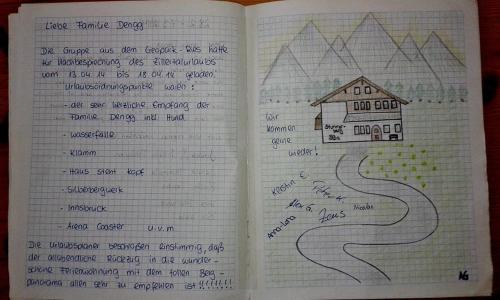 Liebe Familie Dengg
Die Gruppe aus dem Geopark-Ries hatte
zur Nachbesprechung des Zillertalurlaubs
vom 13.04.14 bis 18.04.14 geladen.
Urlaubsordnungspunkte waren:
- der sehr herzliche Empfang der
Familie Dengg inkl. Hund
- Wasserfälle
- Klamm
- Haus steht Kopf
- Silberbergwerk
- Innsbruck
- Arena Coaster u.v.m
Die Urlaubsplaner beschloßen einstimmig, daß
der allabendliche Rückzug in die wunder-
schöne Ferienwohnung mit dem tollen Berg-
panorama allen sehr zu empfehlen ist!!!!!!!
Wir
kommen
gerne
wieder!
Kerstin E.
Alex G.
Nicolas
Anna-Lena
Zeus